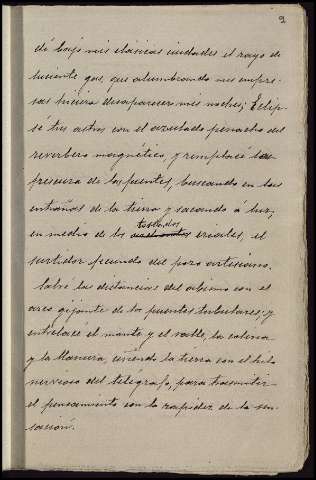 2
dí bajo mis clásicas ciudades el rayo de
luciente gas, que alumbrando mis empre-
sas hiciera desaparecer mis noches; Eclip-
sé tus astros con el azulado penacho del
reverbero magnético, y remplacé la
frescura de las fuentes, buscando en las
entrañas de la tierra y sacando á luz,
tostados
en medio de los eriales, el
surtidor fecundo del pozo artesiano.
Salvé las distancias del abismo con el
arco gigante de los puentes tubulares: y
entrelacé el monte y el valle, la colina
y la llanura, uniendo la tierra con el hilo
nervioso del telégrafo, para trasmitir
el pensamiento con la rapidez de la sen-
sación.